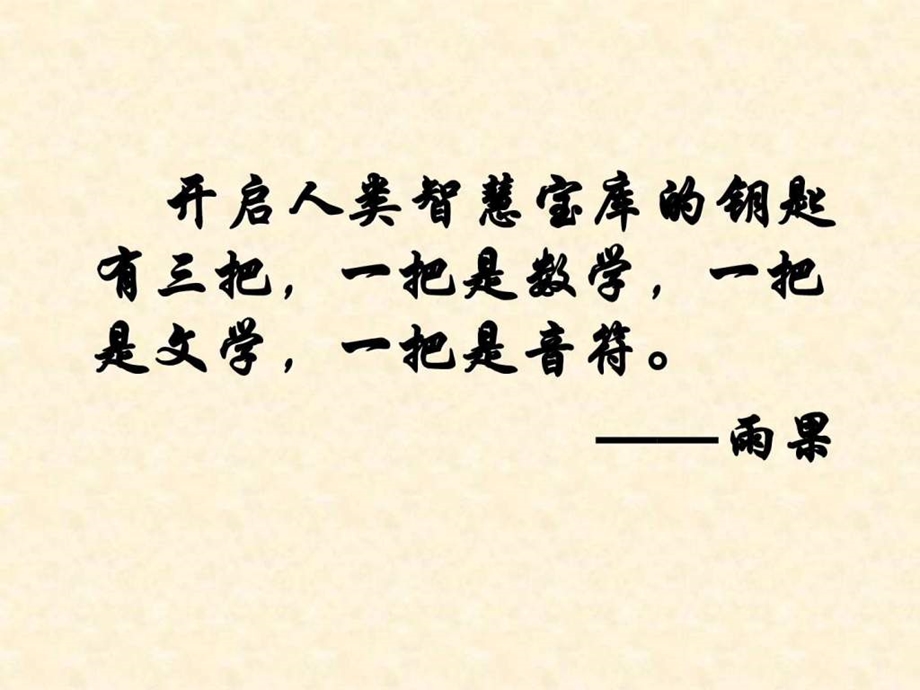 开启人类智慧宝库的钥匙
有三把，一把是数学，一把
是文学，一把是音符。
——雨果